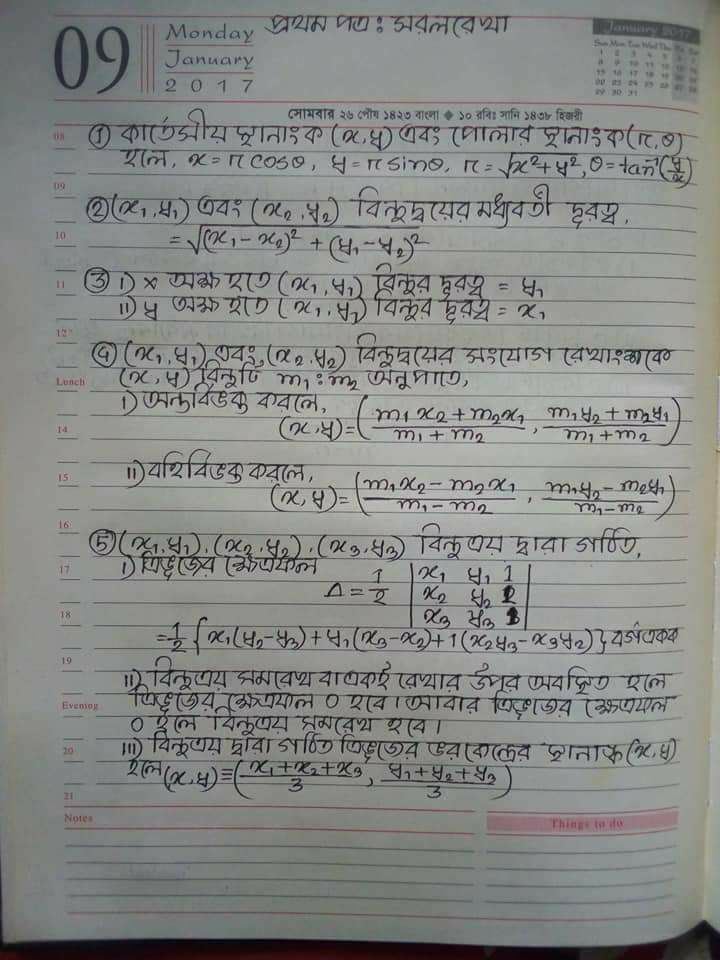 09
Monday
January
2017
প্রথম পত্র: সরলরেখা
January 2017
Sun Mon Tue Wed Thu Fri Sat
1 2 3 4 5 6 7
8 9 10 11 12 13 14
15 16 17 18 19 20 21
22 23 24 25 26 27 28
29 30 31
সোমবার ২৬ পৌষ ১৪২৩ বাংলা ◆ ১০ রবিঃ সানি ১৪৩৮ হিজরী
08 ① কার্তেসীয় স্থানাংক (x,y) এবং পোলার স্থানাংক (r,θ)
হলে, x = r cosθ, y = r sinθ, r = √x²+y², θ = tan⁻¹(y/x)
09
② (x₁,y₁) এবং (x₂,y₂) বিন্দুদ্বয়ের মধ্যবর্তী দূরত্ব,
10 = √(x₁-x₂)² + (y₁-y₂)²
11 ③ i) x অক্ষ হতে (x₁,y₁) বিন্দুর দূরত্ব = y₁
ii) y অক্ষ হতে (x₁,y₁) বিন্দুর দূরত্ব = x₁
12
④ (x₁,y₁) এবং (x₂,y₂) বিন্দুদ্বয়ের সংযোগ রেখাংশকে
Lunch (x,y) বিন্দুটি m₁:m₂ অনুপাতে,
i) অন্তর্বিভক্ত করলে,
14 (x,y) = ((m₁x₂+m₂x₁)/(m₁+m₂), (m₁y₂+m₂y₁)/(m₁+m₂))
15 ii) বহির্বিভক্ত করলে,
(x,y) = ((m₁x₂-m₂x₁)/(m₁-m₂), (m₁y₂-m₂y₁)/(m₁-m₂))
16
⑤ (x₁,y₁), (x₂,y₂), (x₃,y₃) বিন্দুত্রয় দ্বারা গঠিত,
17 i) ত্রিভুজের ক্ষেত্রফল
Δ = 1/2 | x₁ y₁ 1 |
| x₂ y₂ 1 |
18 | x₃ y₃ 1 |
= 1/2 {x₁(y₂-y₃)+y₁(x₃-x₂)+1(x₂y₃-x₃y₂)} বর্গএকক
19
ii) বিন্দুত্রয় সমরেখ বা একই রেখার উপর অবস্থিত হলে
Evening ত্রিভুজের ক্ষেত্রফল 0 হবে। আবার ত্রিভুজের ক্ষেত্রফল
0 হলে বিন্দুত্রয় সমরেখ হবে।
20 iii) বিন্দুত্রয় দ্বারা গঠিত ত্রিভুজের ভরকেন্দ্রের স্থানাঙ্ক (x,y)
হলে (x,y) ≡ ((x₁+x₂+x₃)/3, (y₁+y₂+y₃)/3)
21
Notes
Things to do